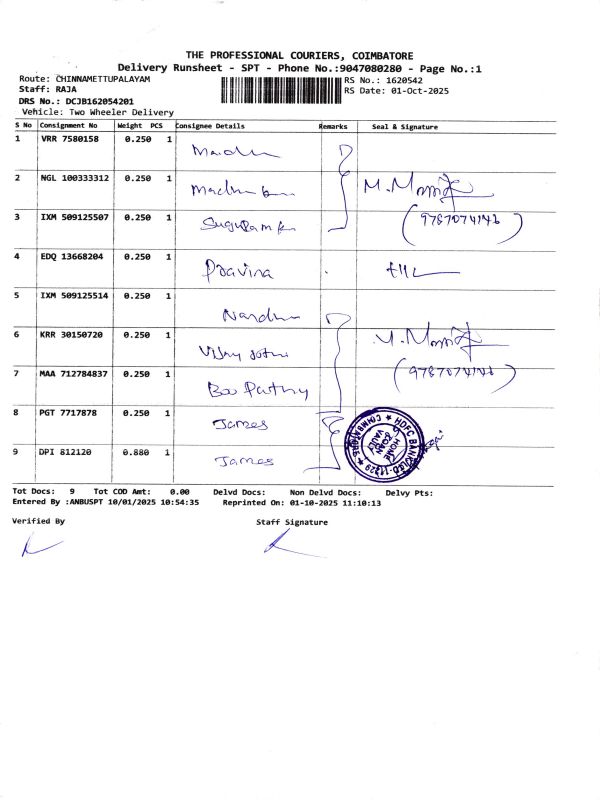 THE PROFESSIONAL COURIERS, COIMBATORE
Delivery Runsheet - SPT - Phone No.:9047080280 - Page No.:1
Route: CHINNAMETTUPALAYAM RS No.: 1620542
Staff: RAJA RS Date: 01-Oct-2025
DRS No.: DCJB162054201
Vehicle: Two Wheeler Delivery
S No Consignment No Weight PCS Consignee Details Remarks Seal & Signature
1 VRR 7580158 0.250 1
2 NGL 100333312 0.250 1
3 IXM 509125507 0.250 1 (9787074146)
4 EDQ 13668204 0.250 1 Pravina
5 IXM 509125514 0.250 1
6 KRR 30150720 0.250 1
7 MAA 712784837 0.250 1 Boo Pathy (9787074146)
8 PGT 7717878 0.250 1 James
9 DPI 812120 0.880 1 James
HDFC BANK LTD
COIMBATORE
HOME
LOAN
VAULT
Tot Docs: 9 Tot COD Amt: 0.00 Delvd Docs: Non Delvd Docs: Delvy Pts:
Entered By :ANBUSPT 10/01/2025 10:54:35 Reprinted On: 01-10-2025 11:10:13
Verified By Staff Signature